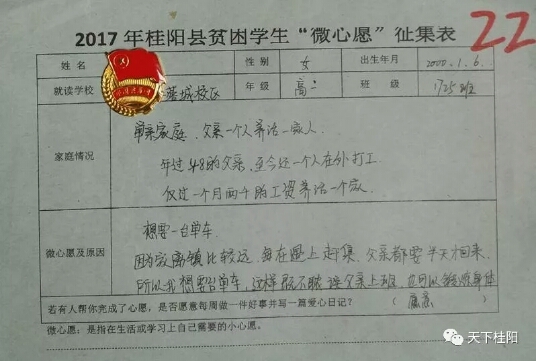 2017年桂阳县贫困学生“微心愿”征集表
22
姓名 性别 女 出生年月 2000.1.6.
就读学校 蓉城校区 年级 高二 班级 1725班
家庭情况
单亲家庭、父亲一个人养活一家人.
年过48的父亲,至今还一个人在外打工.
仅过一个月两千的工资养活一个家.
微心愿及原因
想要一台单车.
因为家离镇比较远,每在遇上赶集、父亲都要半天才回来.
所以我想要台单车,这样既不
若有人帮你完成了心愿,是否愿意每周做一件好事并写一篇爱心日记? ( 愿意 )
微心愿:是指在生活或学习上自己需要的小心愿。
天下桂阳